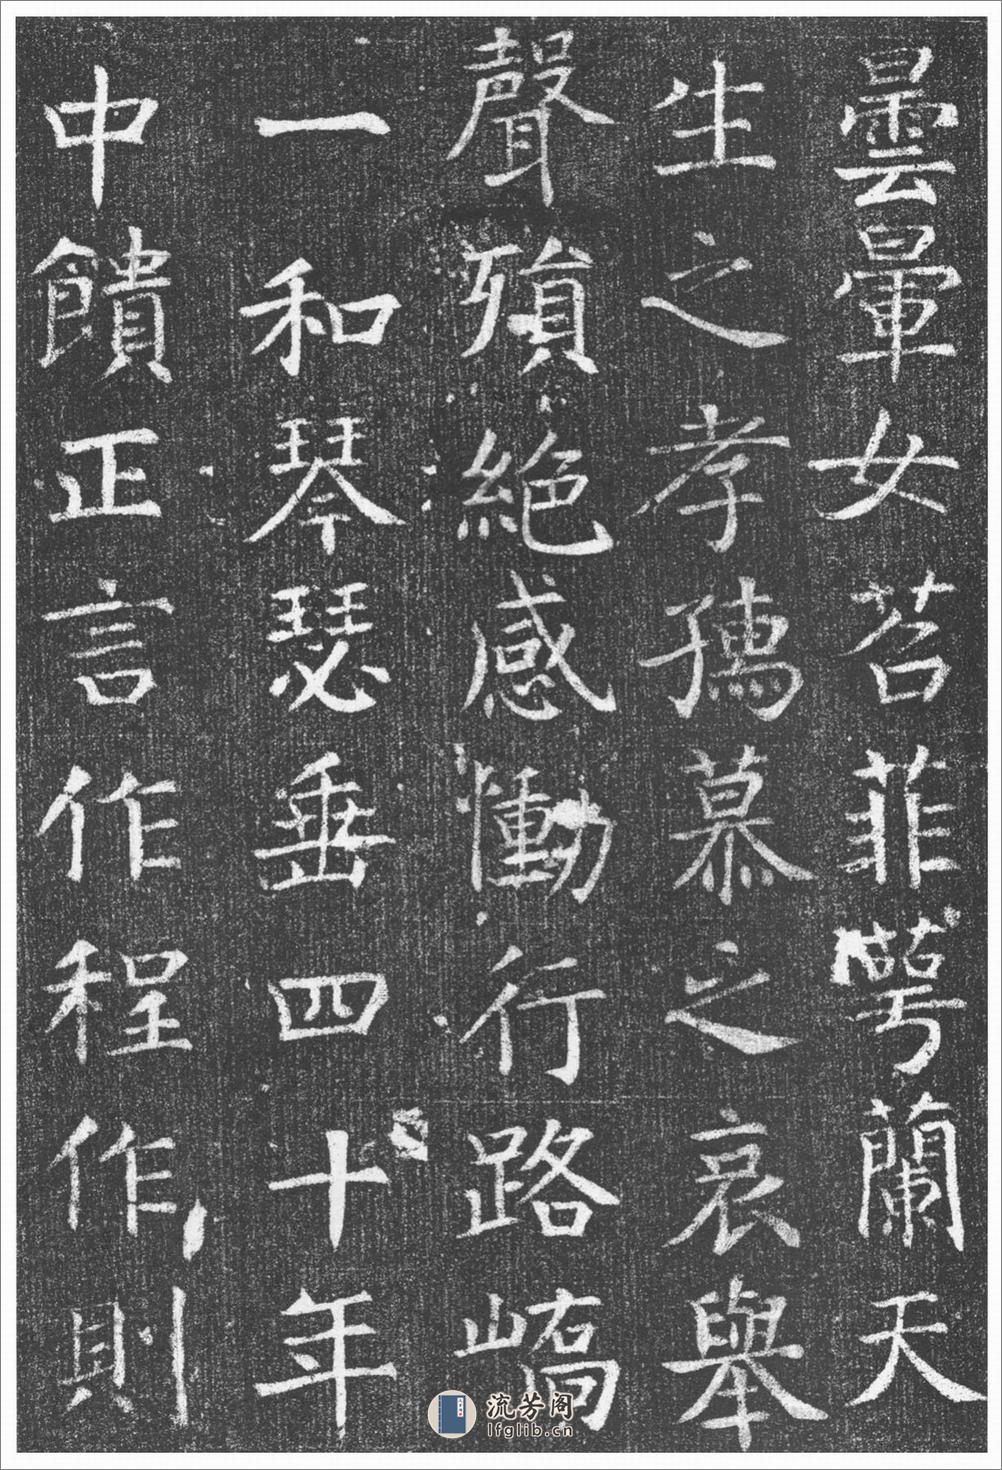 曇暈女苕菲萼蘭天
生之孝孺慕之哀舉
聲殞絕感慟行路嶠
一和琴瑟垂四十年
中饋正言作程作則
流芳阁
lfglib.cn